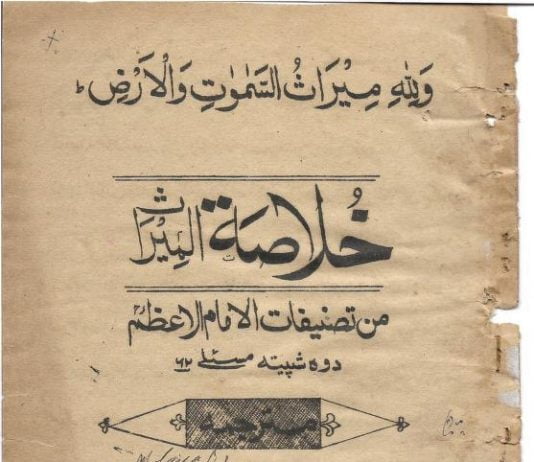 وَلِلّٰهِ مِيْرَاثُ السَّمٰوٰتِ وَالْاَرْضِ ط
خُلاصَة المِيْرَاث
من تصنيفات الامام الاعظمؒ
دوه شپيته مسئلے ٦٢
مترجمه